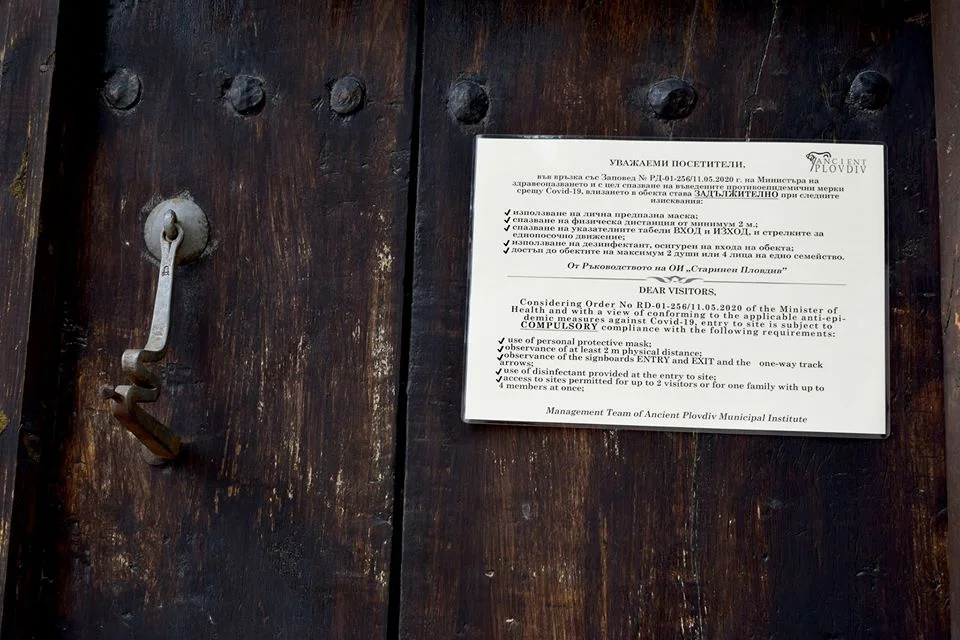 ANCIENT
PLOVDIV
УВАЖАЕМИ ПОСЕТИТЕЛИ,
във връзка със Заповед № РД-01-256/11.05.2020 г. на Министъра на
здравеопазването и с цел спазване на въведените противоепидемични мерки
срещу Covid-19, влизането в обекта става ЗАДЪЛЖИТЕЛНО при следните
изисквания:
✓ използване на лична предпазна маска;
✓ спазване на физическа дистанция от минимум 2 м.;
✓ спазване на указателните табели ВХОД и ИЗХОД, и стрелките за
еднопосочно движение;
✓ използване на дезинфектант, осигурен на входа на обекта;
✓ достъп до обектите на максимум 2 души или 4 лица на едно семейство.
От Ръководството на ОИ „Старинен Пловдив"
DEAR VISITORS,
Considering Order No RD-01-256/11.05.2020 of the Minister of
Health and with a view of conforming to the applicable anti-epi-
demic measures against Covid-19, entry to site is subject to
COMPULSORY compliance with the following requirements:
✓ use of personal protective mask;
✓ observance of at least 2 m physical distance;
✓ observance of the signboards ENTRY and EXIT and the one-way track
arrows;
✓ use of disinfectant provided at the entry to site;
✓ access to sites permitted for up to 2 visitors or for one family with up to
4 members at once;
Management Team of Ancient Plovdiv Municipal Institute